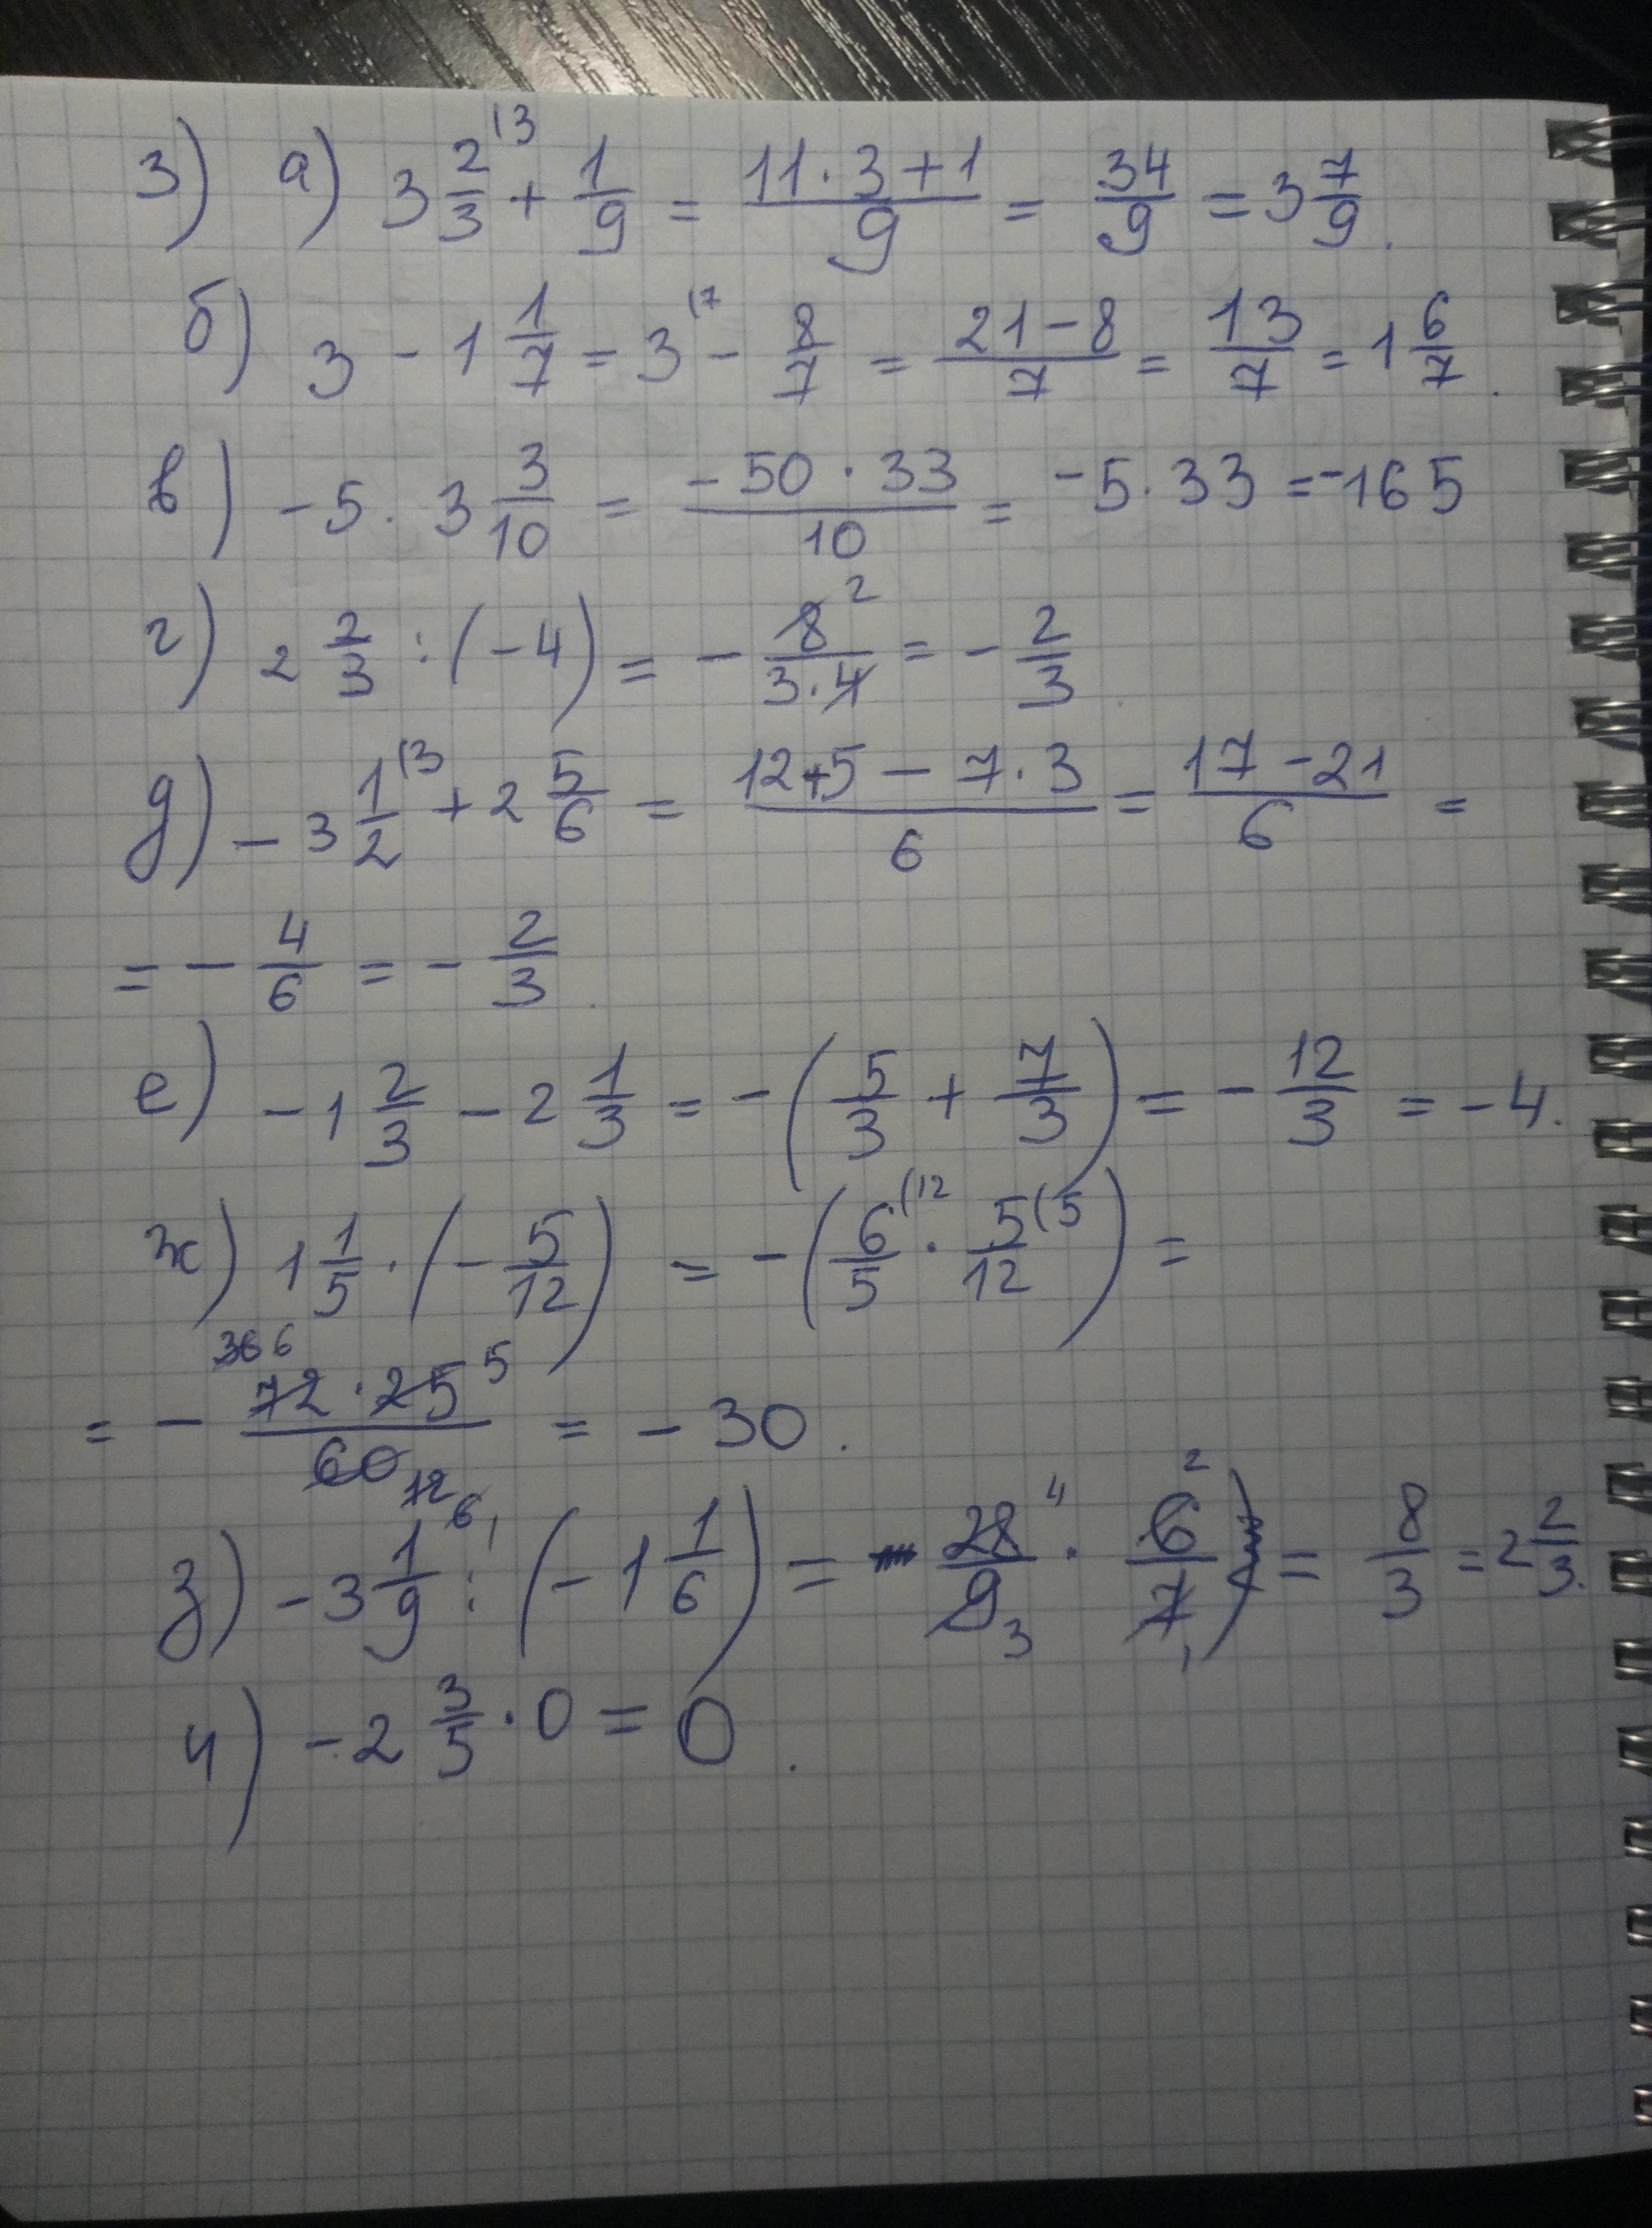 3) а) 3 2/3 (3 + 1/9 = 11·3+1/9 = 34/9 = 3 7/9.
б) 3 - 1 1/7 = 3 (7 - 8/7 = 21-8/7 = 13/7 = 1 6/7.
в) -5·3 3/10 = -50·33/10 = -5·33 = -165
г) 2 2/3 : (-4) = - 8 2/3·4 = - 2/3
д) -3 1/2 (3 + 2 5/6 = 12+5-7·3/6 = 17-21/6 =
= - 4/6 = - 2/3.
е) -1 2/3 - 2 1/3 = -(5/3 + 7/3) = - 12/3 = -4.
ж) 1 1/5 · (- 5/12) = -(6/5 (12 · 5/12 (5) =
= - 72 36 6 · 25 5/60 12 6 = -30.
з) -3 1/9 : (-1 1/6) = 28 4/9 3 · 6 2/7 1 = 8/3 = 2 2/3.
4) -2 3/5 · 0 = 0.